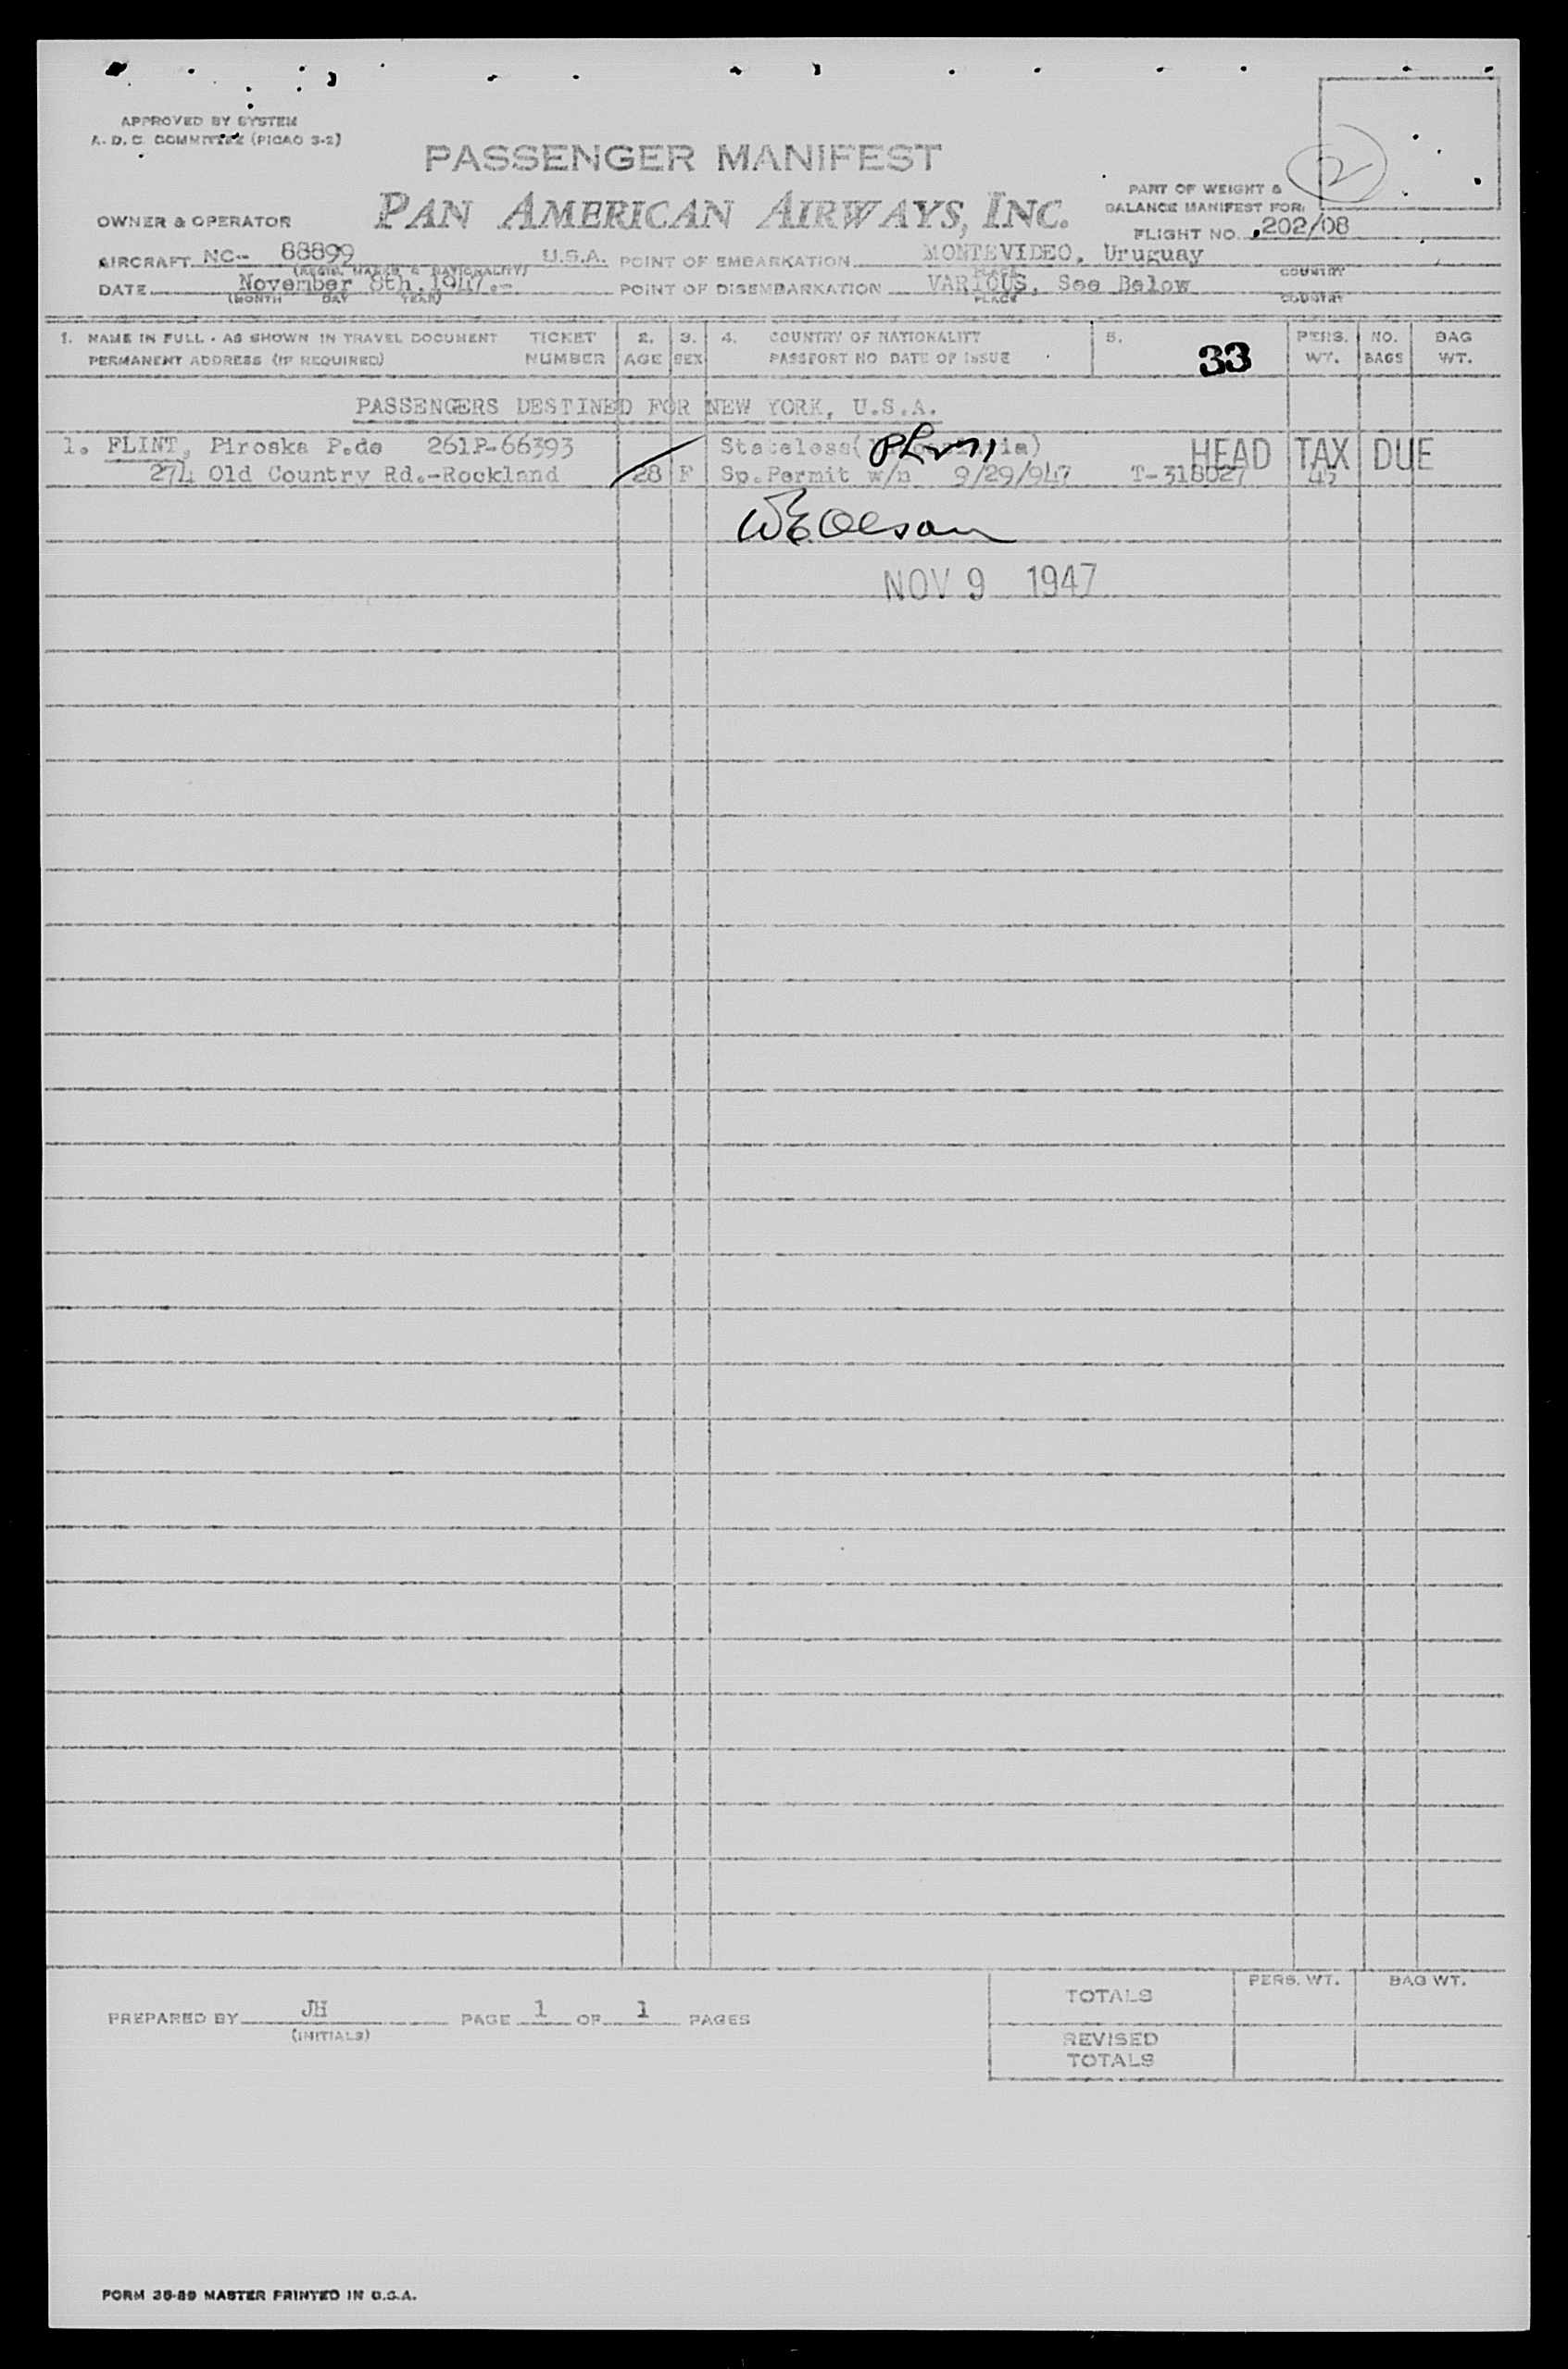 APPROVED BY SYSTEM
A. D. C. COMMITTEE (PICAO 3-2)
2
PASSENGER MANIFEST
PART OF WEIGHT &
BALANCE MANIFEST FOR:
OWNER & OPERATOR PAN AMERICAN AIRWAYS, INC.
FLIGHT NO. 202/08
AIRCRAFT NC- 88899 U.S.A. POINT OF EMBARKATION MONTEVIDEO, Uruguay
(REGIS. MARKS & NATIONALITY) PLACE COUNTRY
DATE November 8th, 1947.- POINT OF DISEMBARKATION VARIOUS, See Below
(MONTH DAY YEAR) PLACE COUNTRY
1. NAME IN FULL - AS SHOWN IN TRAVEL DOCUMENT TICKET 2. 3. 4. COUNTRY OF NATIONALITY 5. PERS. NO. BAG
PERMANENT ADDRESS (IF REQUIRED) NUMBER AGE SEX PASSPORT NO DATE OF ISSUE 33 WT. BAGS WT.
PASSENGERS DESTINED FOR NEW YORK, U.S.A.
1. FLINT, Piroska P.de 261P-66393 Stateless( HEAD TAX DUE
274 Old Country Rd.-Rockland 28 F Sp.Permit w/n 9/29/947 T-318027
WE Olson
NOV 9 1947
TOTALS PERS. WT. BAG WT.
PREPARED BY JH PAGE 1 OF 1 PAGES
(INITIALS)
REVISED
TOTALS
FORM 38-89 MASTER PRINTED IN U.S.A.